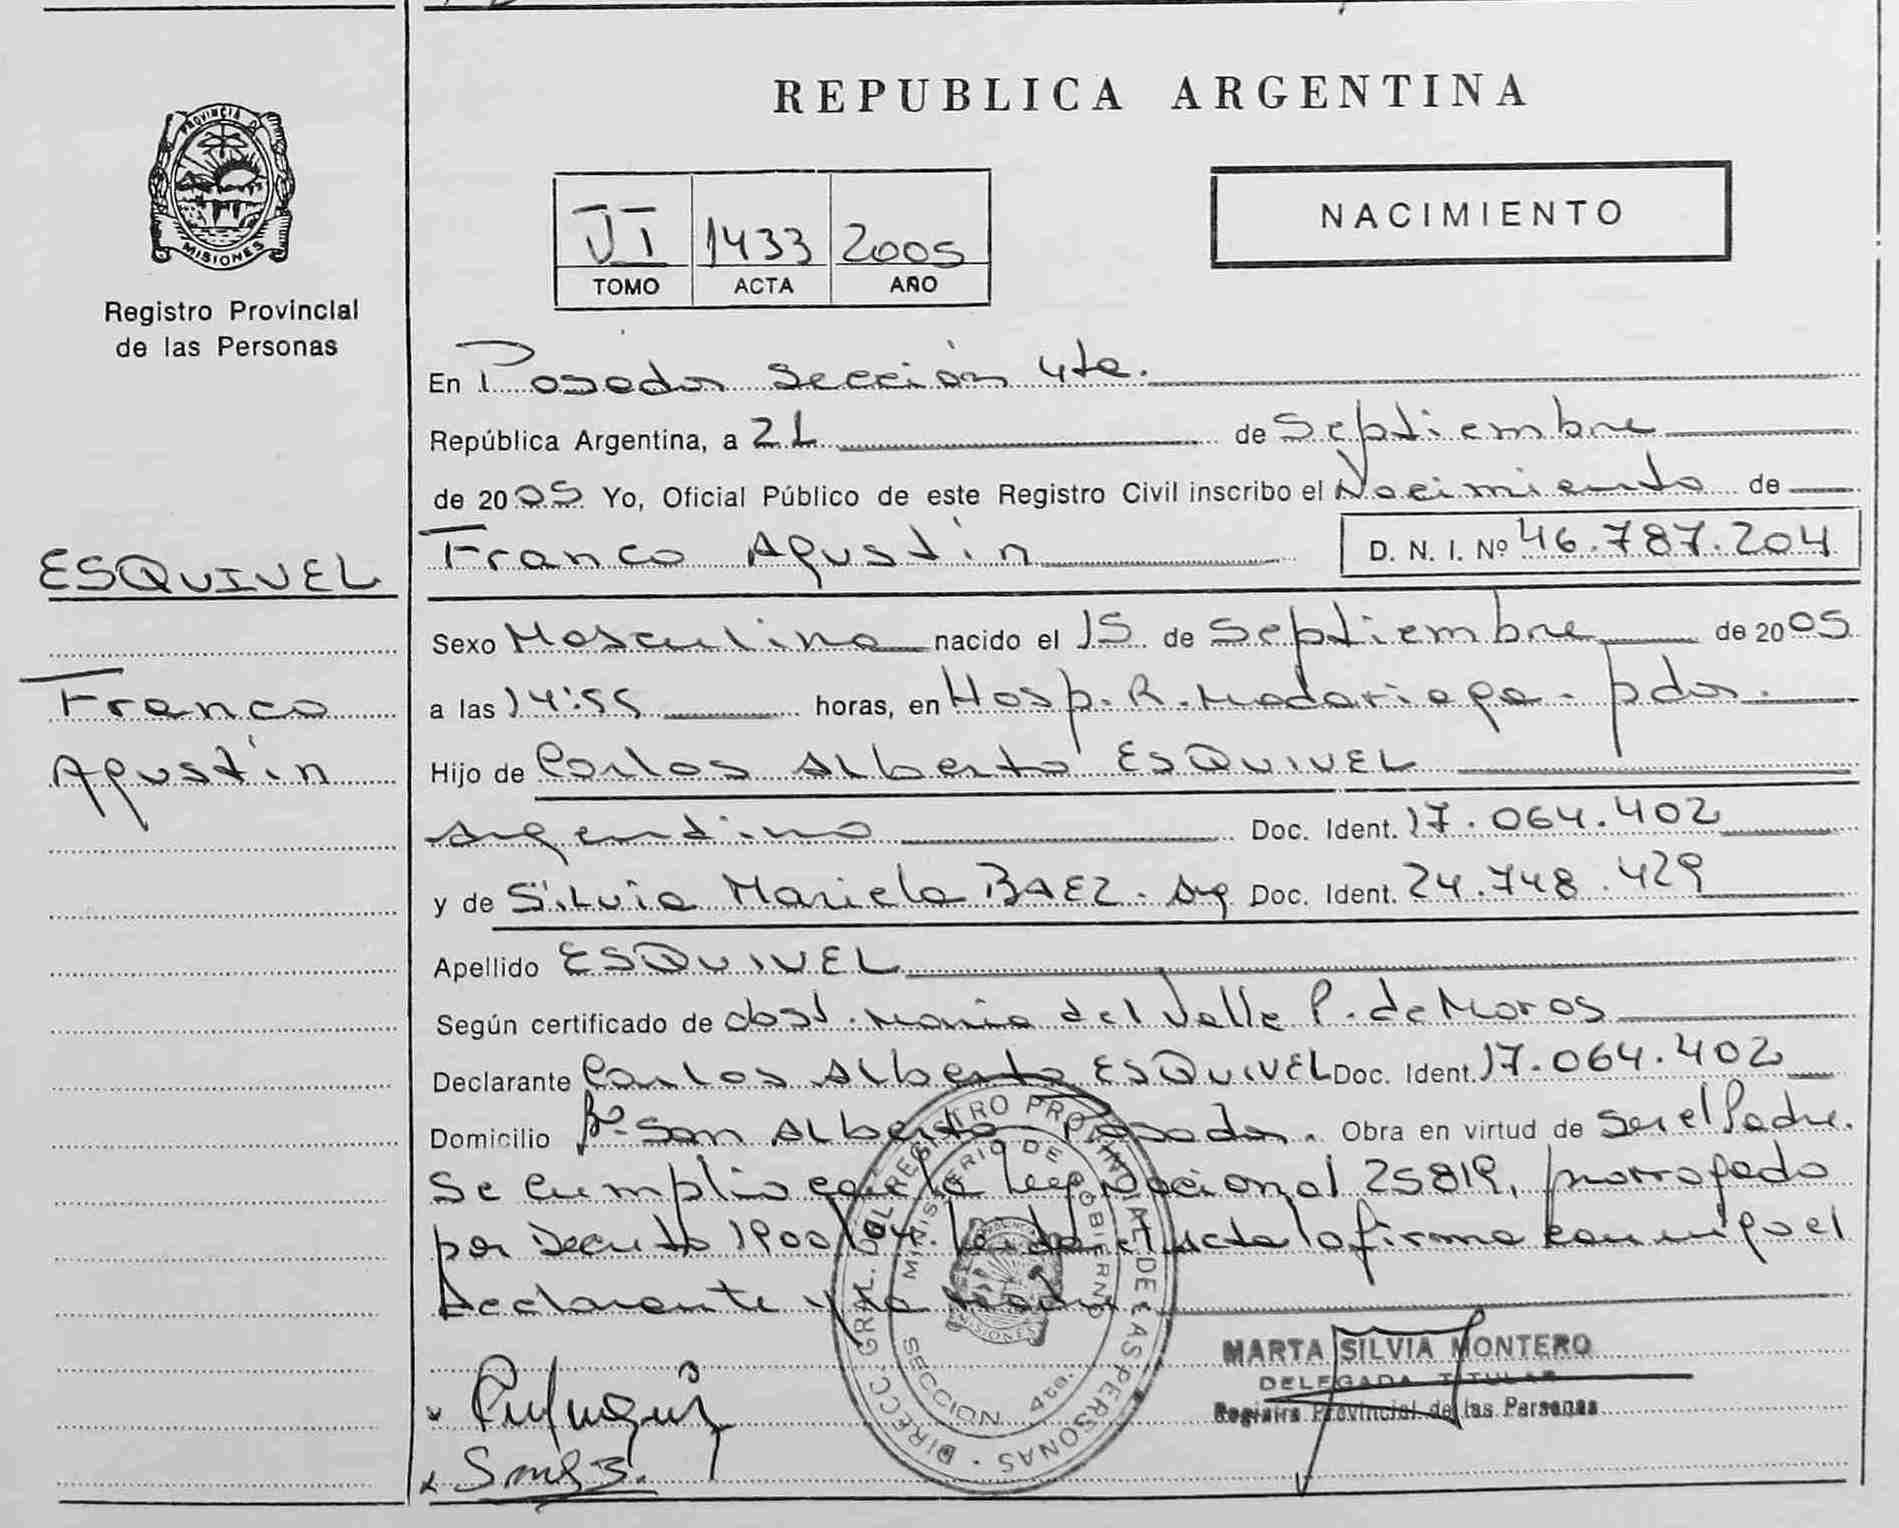 REPUBLICA ARGENTINA
PROVINCIA DE
MISIONES
Registro Provincial
de las Personas
VI 1433 2005
TOMO ACTA AÑO
NACIMIENTO
En Posadas Sección 4ta.
República Argentina, a 21 de Septiembre
de 2005 Yo, Oficial Público de este Registro Civil inscribo el Nacimiento de
Franco Agustín D. N. I. Nº 46.787.204
ESQUIVEL
Sexo Masculino nacido el 15 de Septiembre de 2005
Franco
a las 14:55 horas, en Hosp. R. Madariaga - pdas.
Agustín
Hijo de Carlos Alberto ESQUIVEL
Argentino Doc. Ident. 17.064.402
y de Silvia Mariela BAEZ - Arg Doc. Ident. 24.748.429
Apellido ESQUIVEL
Según certificado de obst. Maria del Valle P. de Moros
Declarante Carlos Alberto ESQUIVEL Doc. Ident. 17.064.402
Domicilio Bº San Alberto Posadas. Obra en virtud de ser el Padre.
Se cumplio con la Ley Nacional 25819, prorrogado
por Decreto 1900/04. Leida el Acta la firma conmigo el
declarante y la Madre
DIRECC. GRAL. DEL REGISTRO PROVINCIAL DE LAS PERSONAS
MINISTERIO DE GOBIERNO
SECCION 4ta.
MISIONES
MARTA SILVIA MONTERO
DELEGADA TITULAR
Registro Provincial de las Personas